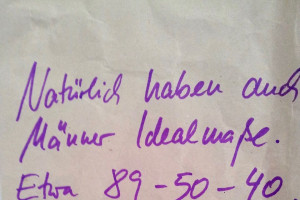 Natürlich haben auch
Männer Idealmaße.
Etwa 89-50-40